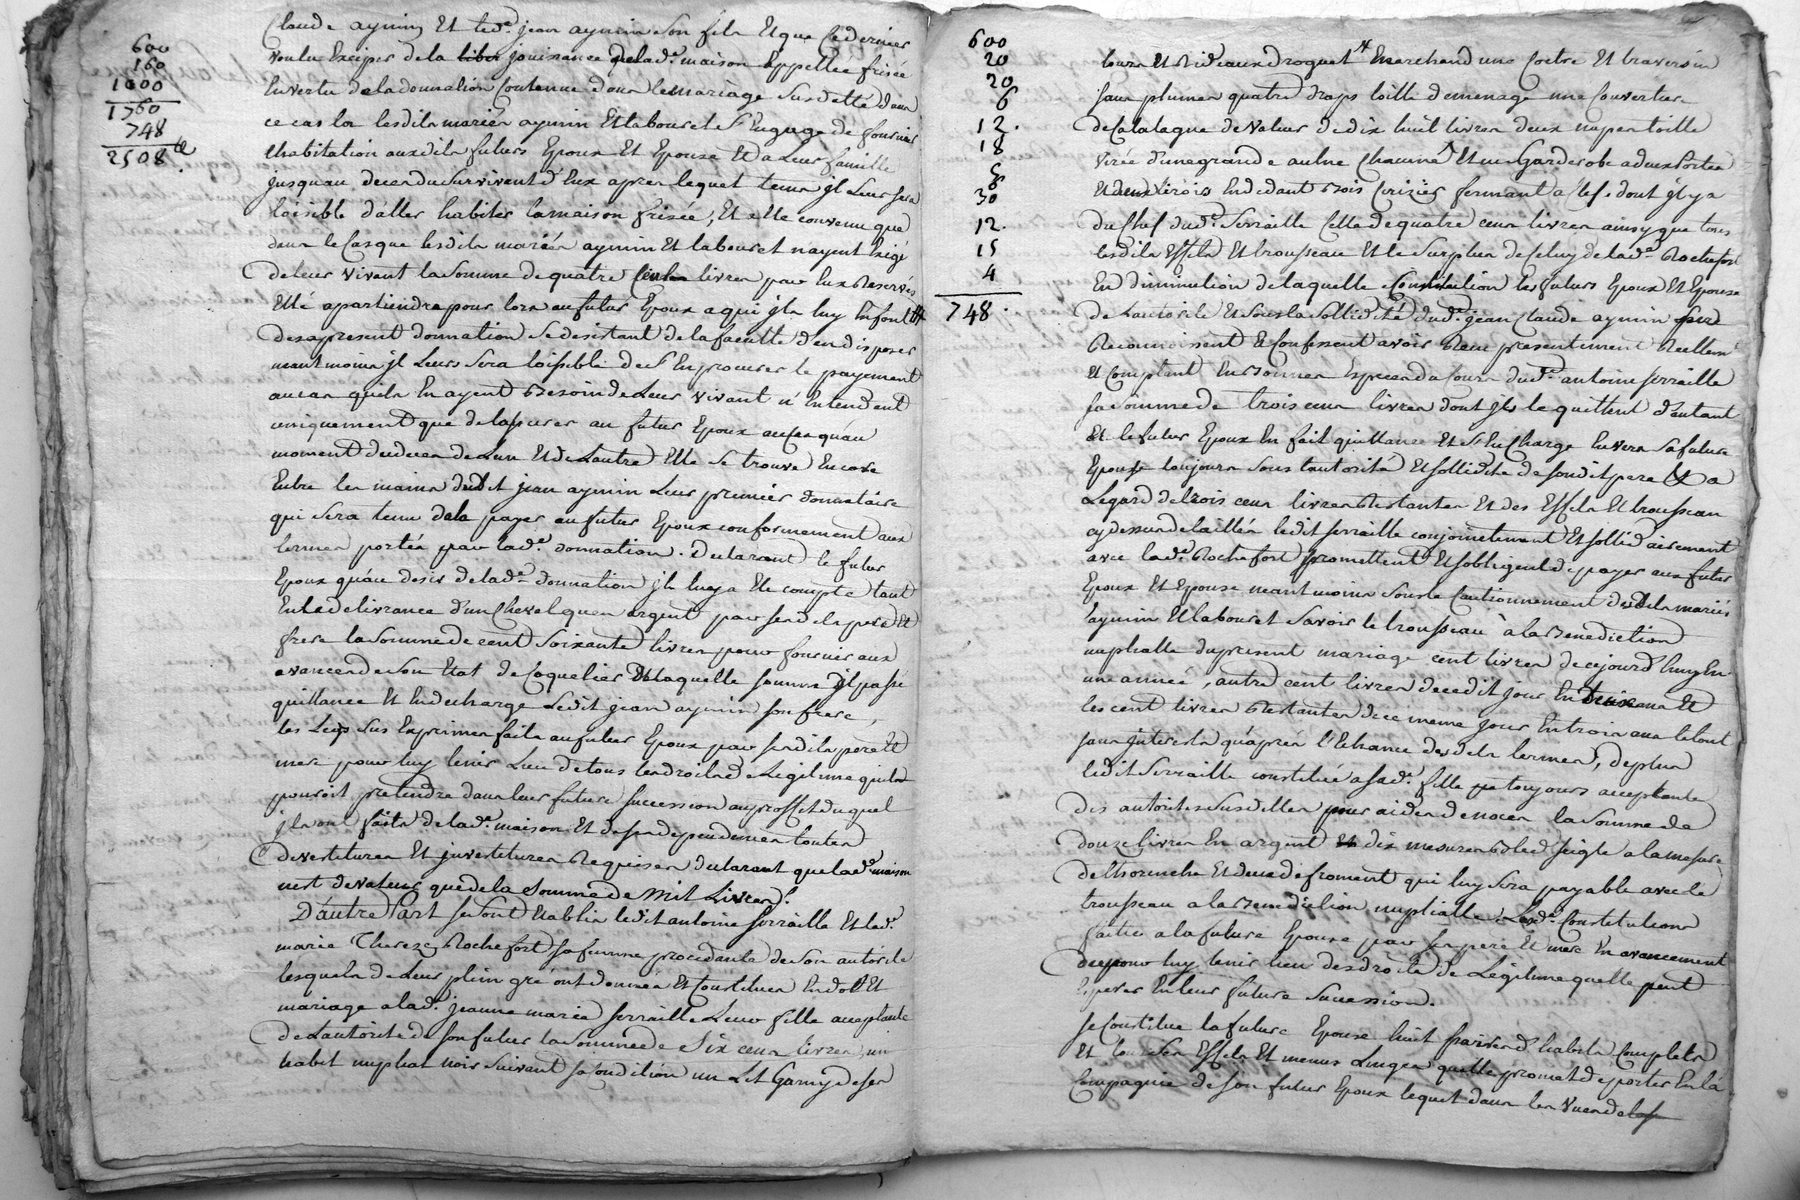 600
160
1000
1760
748
2508 ll.
Claude aymin Et led.t jean aymin son fils Et que Ce dernier
voulu Exciper de la jouissance de lad.e maison appellée frisée
En vertu de la donnation Contenue dans le mariage susdatté dans
ce cas lors lesdits mariés aymin Et labouret s'Engage de fournir
l'habitation auxdits futurs Epoux Et Epouse Et a Leur famille
jusquau deces du survivant d'Eux apres lequel tems jl Leur sera
loisible d'aller habiter la maison frisée, Et Elle convenu que
dans le Cas que lesdits mariés aymin Et labouret nayent Exigé
de leur vivant la somme de quatre Cents livres par Eux Reservés
Elle apartiendra pour lors au futur Epoux a qui jls luy En font
des apresent donnation se desistant de la faculté d'en disposer
neantmoins jl Leurs sera loisible de s'En procurer le payement
au cas quils En ayent Besoin de Leur vivant n'Entendent
uniquement que d'assurer au futur Epoux au Cas quau
moment du deces de L'un Et de L'autre Elle se trouve Encore
Entre les mains dudit jean aymin Leur premier donnataire
qui sera tenu de la payer au futur Epoux conformement aux
termes portés par lad.e donnation. Declarant le futur
Epoux qu'au desir de lad.e donnation jl luy a Eté compté tant
En la delivrance d'un Cheval quen argent par sesdits pere Et
frere la somme de cent soixante livres pour fournir aux
avances de son Etat de Coquetier de laquelle somme jl passe
quittance Et En decharge Ledit jean aymin son frere,
les Legs sus Exprimés faits au futur Epoux par sesdits pere Et
mere pour luy tenir Lieu de tous les droits de Legitime quil
pouroit pretendre dans leur future succession au proffit duquel
jls ont faits de lad.e maison Et de ses dependences toutes
devestitures Et jnvestitures Requises declarant que lad.e maison
nest de valeur que de la somme de Mil Livres.
D'autre Part se sont Etablis ledit antoine serraille Et lad.e
marie Thereze Rochefort sa femme procedante de son autorité
lesquels de Leur plein gré ont donnés Et Constitues En dot Et
mariage a lad.e jeanne marie serraille Leur fille acceptante
de L'autorité de son futur la somme de Six cens livres, un
habit nuptial noir suivant sa Condition un Lit Garny de ses
600
20
20
6
12.
18
30
12.
15
4
748.
tours Et Rideaux droguet Marchand une Coetre Et traversin
sans plumes quatre draps toille de menage une Couverture
de Catalogne de valeur de dix huit livres deux napes toille
virée d'une grande aulne Chacune Et un Garderobe a deux Portes
Et trois En dedant Bois Cerizier fermant a clef dont jl y a
du Chef dud.t serraille Celle de quatre cens livres ainsy que tous
lesdits Effets Et trousseau Et le surplus de Celuy de lad.e Rochefort
En diminution de laquelle Constitution les futurs Epoux Et Epouse
de L'autorité Et sous la sollidité dud.t jean Claude aymin
Reconnoissent Et Confessent avoir Reçu presentement Reellem.t
Et Comptant En Bonnes Especes du Cours dud.t antoine serraille
la somme de trois cens livres dont jls le quittent d'autant
Et le futur Epoux En fait quittance Et s'En Charge Envers sa future
Epouse toujours sous l'autorité Et sollidité de sondit pere Et a
Legard de trois cens livres Restantes Et des Effets Et trousseau
cy dessus detaillés ledit serraille conjointement Et sollidairement
avec lad.e Rochefort promettent Et s'obligent de payer aux futur
Epoux Et Epouse neantmoins sous le Cautionnement desdits mariés
aymin Et labouret savoir le trousseau à la Benediction
nuptialle du present mariage cent livres de cejourd'huy En
une année, autre cent livres de cedit jour En deux ans Et
les cent livres Restantes de ce meme jour En trois ans le tout
sans jnterets qu'après l'Echeance desdits termes, de plus
ledit serraille constitue a sad.e fille toujours acceptante
des autorités susdittes pour aider de noces la somme de
douze livres En argent dix mesures Bled seigle a la mesure
de Lhormche Et deux de froment qui luy sera payable avec le
trousseau a la Benediction nuptialle. Lesd.e Constitutions
faites a la future Epouse par ses pere Et mere En avancement
pour luy tenir lieu des droits de Legitime quelle peut
Esperer En leur future succession.
se Constitue la future Epouse huit paires d'habits Complets
Et tous ses Effets Et menus Linges quelle promet de porter En la
Compagnie de son futur Epoux lequel dans les vues de